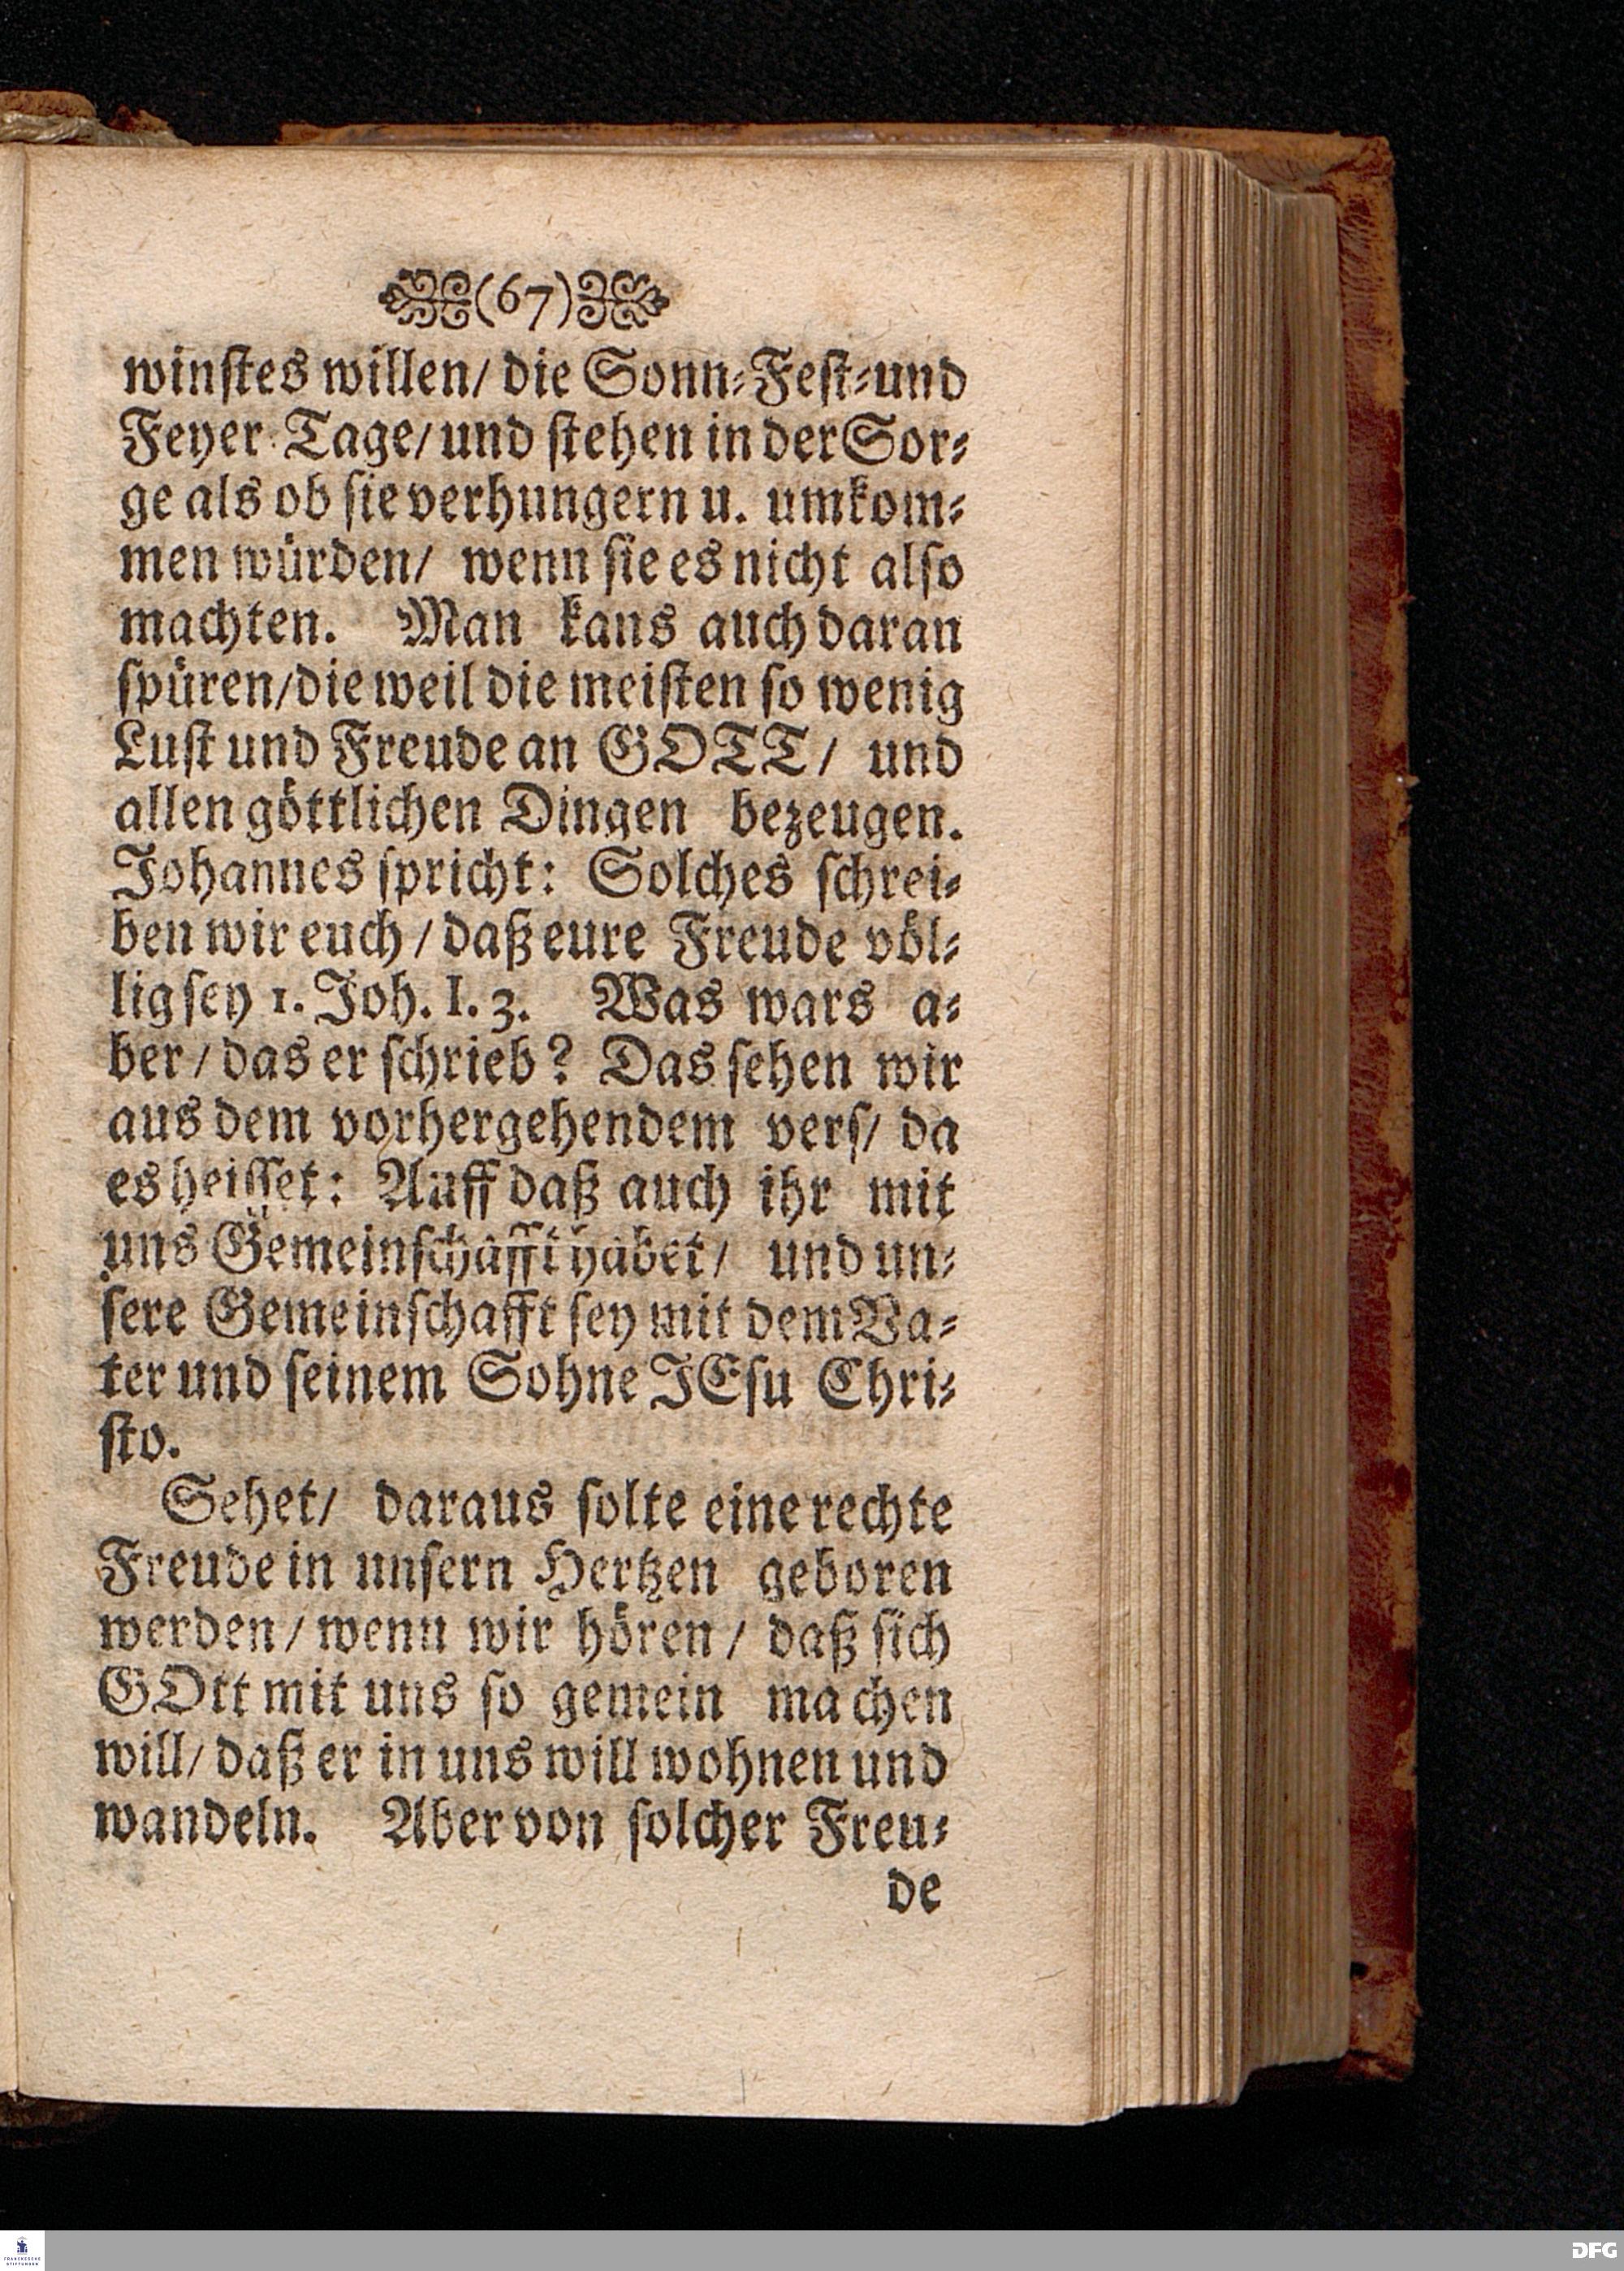 (67)
winſtes willen/ die Sonn-Feſt-und
Feyer Tage/ und ſtehen in der Sor-
ge als ob ſie verhungern u. umkom-
men würden/ wenn ſie es nicht alſo
machten. Man kans auch daran
ſpüren/ die weil die meiſten ſo wenig
Luſt und Freude an GOTT/ und
allen göttlichen Dingen bezeugen.
Johannes ſpricht: Solches ſchrei-
ben wir euch/ daß eure Freude völ-
lig ſey 1. Joh. I. 3. Was wars a-
ber/ das er ſchrieb? Das ſehen wir
aus dem vorhergehendem verſ/ da
es heiſſet: Auff daß auch ihr mit
uns Gemeinſchafft habet/ und un-
ſere Gemeinſchafft ſey mit dem Va-
ter und ſeinem Sohne JEſu Chri-
ſto.
Sehet/ daraus ſolte eine rechte
Freude in unſern Hertzen geboren
werden/ wenn wir hören/ daß ſich
GOtt mit uns ſo gemein machen
will/ daß er in uns will wohnen und
wandeln. Aber von ſolcher Freu-
de
FRANCKESCHE
STIFTUNGEN
DFG